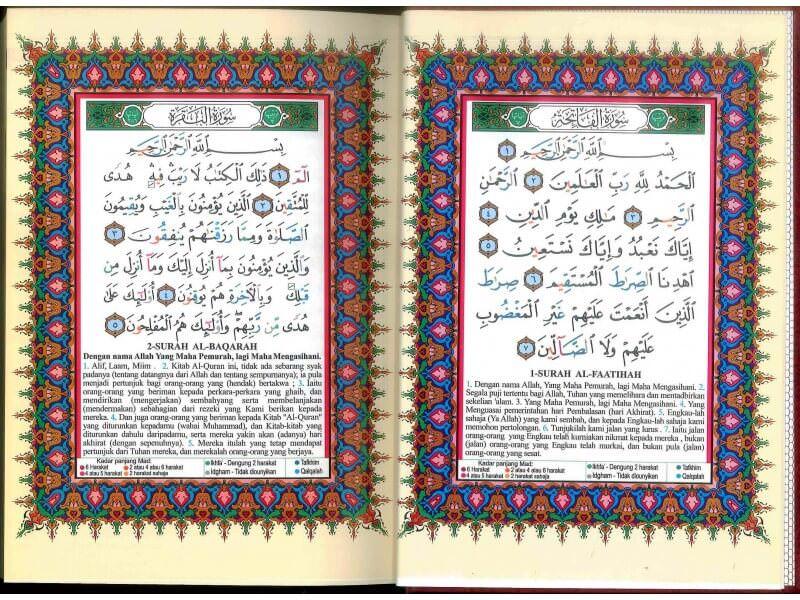 سورة الفاتحة
بِسْمِ ٱللَّهِ ٱلرَّحْمَٰنِ ٱلرَّحِيمِ ١
ٱلْحَمْدُ لِلَّهِ رَبِّ ٱلْعَٰلَمِينَ ٢ ٱلرَّحْمَٰنِ
ٱلرَّحِيمِ ٣ مَٰلِكِ يَوْمِ ٱلدِّينِ ٤
إِيَّاكَ نَعْبُدُ وَإِيَّاكَ نَسْتَعِينُ ٥
ٱهْدِنَا ٱلصِّرَٰطَ ٱلْمُسْتَقِيمَ ٦ صِرَٰطَ
ٱلَّذِينَ أَنْعَمْتَ عَلَيْهِمْ غَيْرِ ٱلْمَغْضُوبِ
عَلَيْهِمْ وَلَا ٱلضَّآلِّينَ ٧
1-SURAH AL-FAATIHAH
1. Dengan nama Allah, Yang Maha Pemurah, lagi Maha Mengasihani. 2.
Segala puji tertentu bagi Allah, Tuhan yang memelihara dan mentadbirkan
sekelian 'alam. 3. Yang Maha Pemurah, lagi Maha Mengasihani. 4. Yang
Menguasai pemerintahan hari Pembalasan (hari Akhirat). 5. Engkau-lah
sahaja (Ya Allah) yang kami sembah, dan kepada Engkau-lah sahaja kami
memohon pertolongan. 6. Tunjukilah kami jalan yang lurus. 7. Iaitu jalan
orang-orang yang Engkau telah kurniakan nikmat kepada mereka , bukan
(jalan) orang-orang yang Engkau telah murkai, dan bukan pula (jalan)
orang-orang yang sesat.
Kadar panjang Mad:
6 Harakat 2 atau 4 atau 6 harakat Ikhfa' - Dengung 2 harakat Tafkhim
4 atau 5 harakat 2 harakat sahaja Idgham - Tidak diounyikan Qalqalah
سورة البقرة
بِسْمِ ٱللَّهِ ٱلرَّحْمَٰنِ ٱلرَّحِيمِ
الٓمٓ ١ ذَٰلِكَ ٱلْكِتَٰبُ لَا رَيْبَ فِيهِ هُدًى
لِّلْمُتَّقِينَ ٢ ٱلَّذِينَ يُؤْمِنُونَ بِٱلْغَيْبِ وَيُقِيمُونَ
ٱلصَّلَوٰةَ وَمِمَّا رَزَقْنَٰهُمْ يُنفِقُونَ ٣
وَٱلَّذِينَ يُؤْمِنُونَ بِمَآ أُنزِلَ إِلَيْكَ وَمَآ أُنزِلَ مِن
قَبْلِكَ وَبِٱلْأَخِرَةِ هُمْ يُوقِنُونَ ٤ أُو۟لَٰٓئِكَ عَلَىٰ
هُدًى مِّن رَّبِّهِمْ وَأُو۟لَٰٓئِكَ هُمُ ٱلْمُفْلِحُونَ ٥
2-SURAH AL-BAQARAH
Dengan nama Allah Yang Maha Pemurah, lagi Maha Mengasihani.
1. Alif, Laam, Miim . 2. Kitab Al-Quran ini, tidak ada sebarang syak
padanya (tentang datangnya dari Allah dan tentang sempurnanya); ia pula
menjadi pertunjuk bagi orang-orang yang (hendak) bertakwa ; 3. Iaitu
orang-orang yang beriman kepada perkara-perkara yang ghaib, dan
mendirikan (mengerjakan) sembahyang serta membelanjakan
(mendermakan) sebahagian dari rezeki yang Kami berikan kepada
mereka. 4. Dan juga orang-orang yang beriman kepada Kitab "Al-Quran"
yang diturunkan kepadamu (wahai Muhammad), dan Kitab-kitab yang
diturunkan dahulu daripadamu, serta mereka yakin akan (adanya) hari
akhirat (dengan sepenuhnya). 5. Mereka itulah yang tetap mendapat
pertunjuk dari Tuhan mereka, dan merekalah orang-orang yang berjaya.
Kadar panjang Mad:
6 Harakat 2 atau 4 atau 6 harakat Ikhfa' - Dengung 2 harakat Tafkhim
4 atau 5 harakat 2 harakat sahaja Idgham - Tidak diounyikan Qalqalah